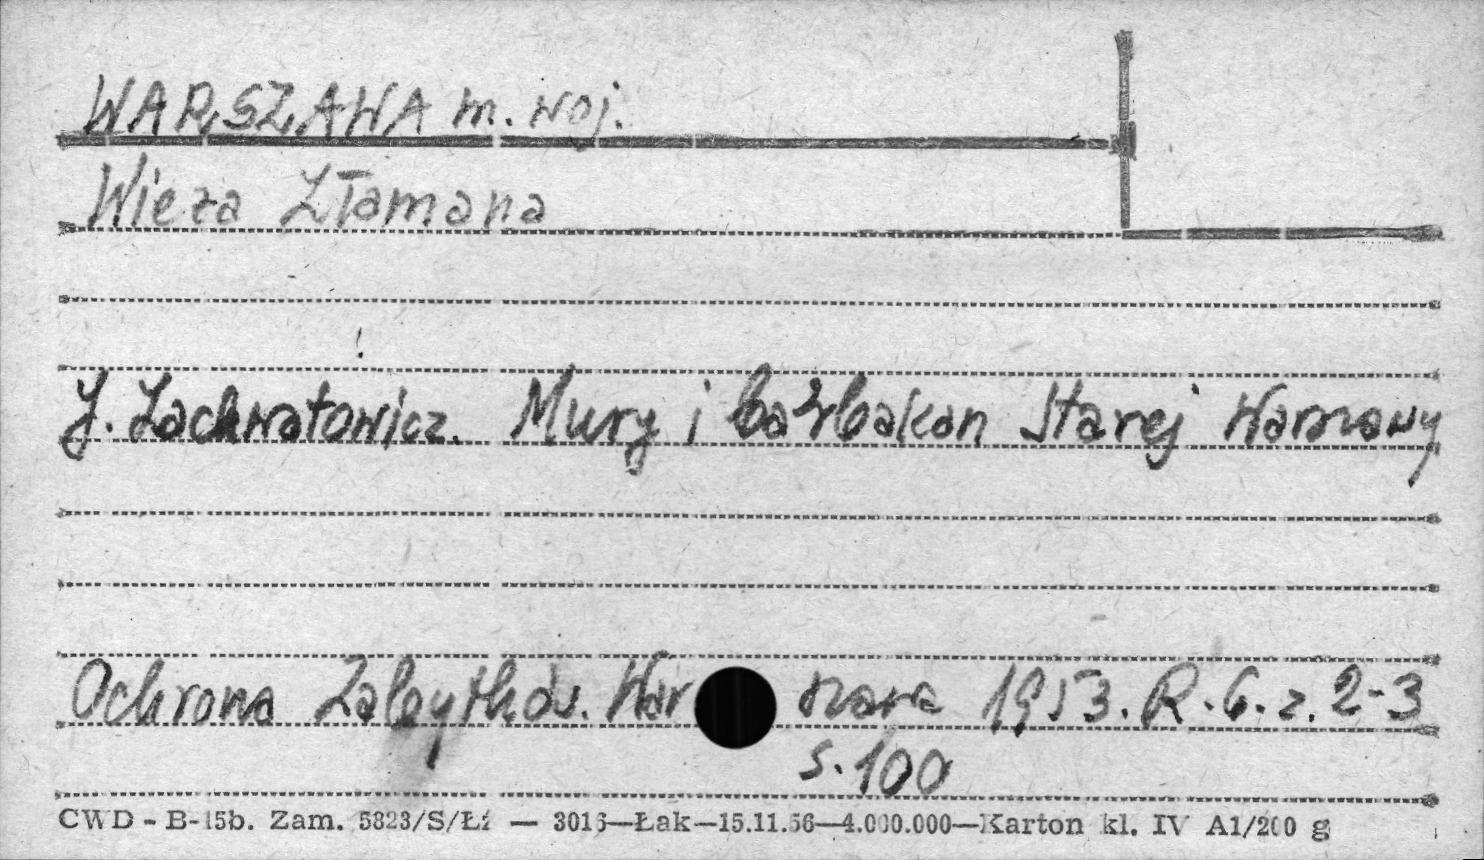 WARSZAWA m. woj.
Wieża Złamana
J. Zachwatowicz. Mury i barbakan Starej Warszawy
Ochrona Zabytków. War szawa 1953. R. 6. z. 2-3
s. 100
CWD - B-15b. Zam. 5823/S/Łź — 3016—Łak—15.11.56—4.000.000—Karton kl. IV A1/200 g